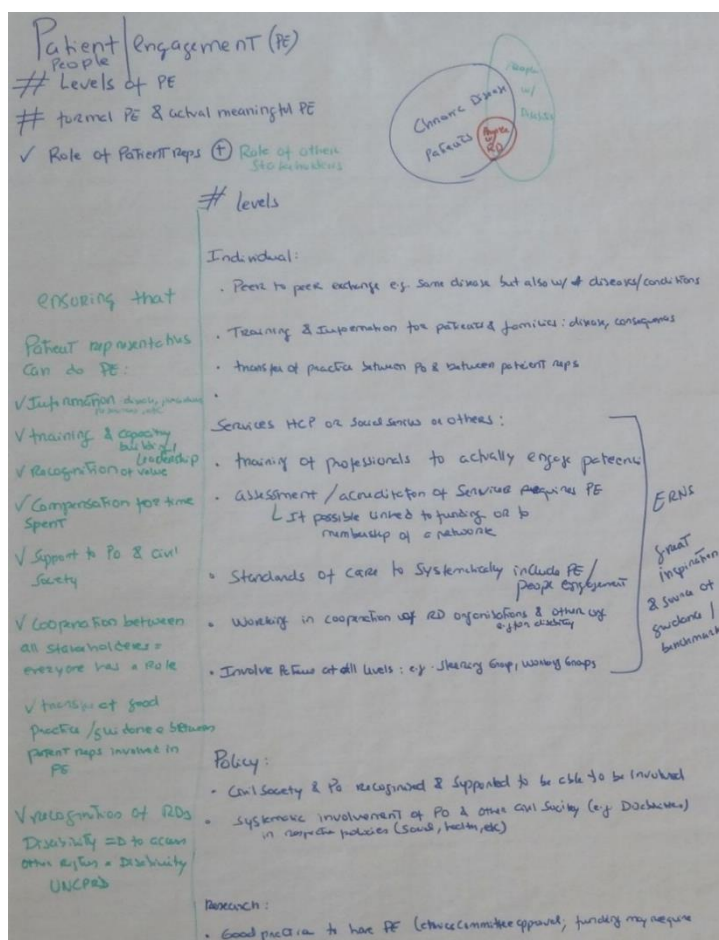 Patient / engagement (PE)
People
# Levels of PE
# formal PE & actual meaningful PE
✓ Role of Patient reps ⊕ Role of other
Stakeholders
Chronic Disease
Patients
People
w/
RD
w/
# levels
Individual:
· Peer to peer exchange e.g. same disease but also w/ ≠ diseases/conditions
· Training & Information for patients & families: disease, consequences
· transfer of practice between PO & between patient reps
·
Services HCP or social services or others:
· training of professionals to actually engage patients
· assessment / acreditation of Services requires PE
↳ If possible linked to funding or to
membership of a network
· Standards of care to Systematically include PE /
people engagement
· Working in cooperation w/ RD organisations & other
e.g. for disability
· Involve at all levels: e.g. Steering Group, Working Groups
ERNS
great
inspiration
& source of
guidance /
benchmark
Policy:
· Civil Society & PO recognised & Supported to be able to be involved
· systematic involvement of PO & other Civil Society (e.g.
in respective policies (social, health, etc)
Research:
· Good practice to have PE (ethics committee approval; funding may require
ensuring that
Patient representatives
can do PE:
✓ Information disease, procedures
✓ training & capacity
building /
leadership
✓ Recognition of value
✓ Compensation for time
spent
✓ Support to PO & Civil
Society
✓ Cooperation between
all stakeholders =
everyone has a Role
✓ transfer of good
practice / guidance between
patent reps involved in
PE
✓ recognition of RDs
Disability => to access
other rights = Disability
UNCPRD